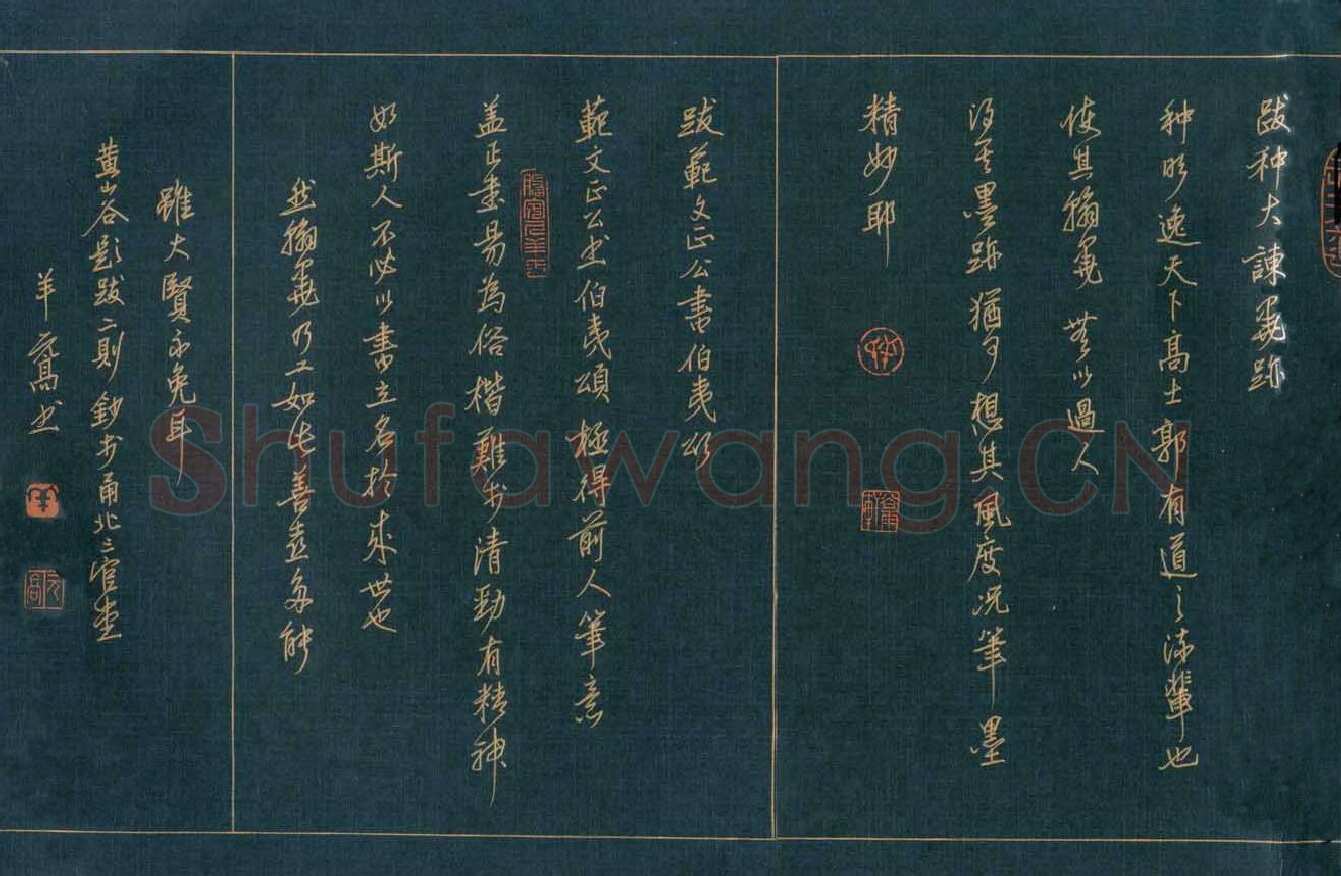 跋种大諫墨跡
种明逸天下高士郭有道之流輩也
使其翰墨無以過人
得其墨跡猶可想其風度况筆墨
精妙耶
跋範文正公書伯夷頌
範文正公書伯夷頌極得前人筆意
盖正書易為俗楷難於清勁有精神
如斯人不必以書立名於來世也
然翰墨乃工如此善盡多能
雖大賢不免耳
黄山谷題跋二則鈔於甬北二官堂
羊高書
Shufawang.CN